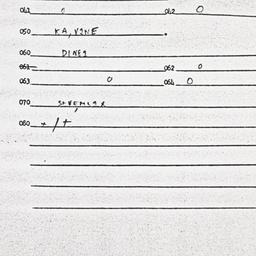 041 0 042 0
050 KA, V2NE
060 DINEI
061 062 0
063 0 064 0
070
080 + / +